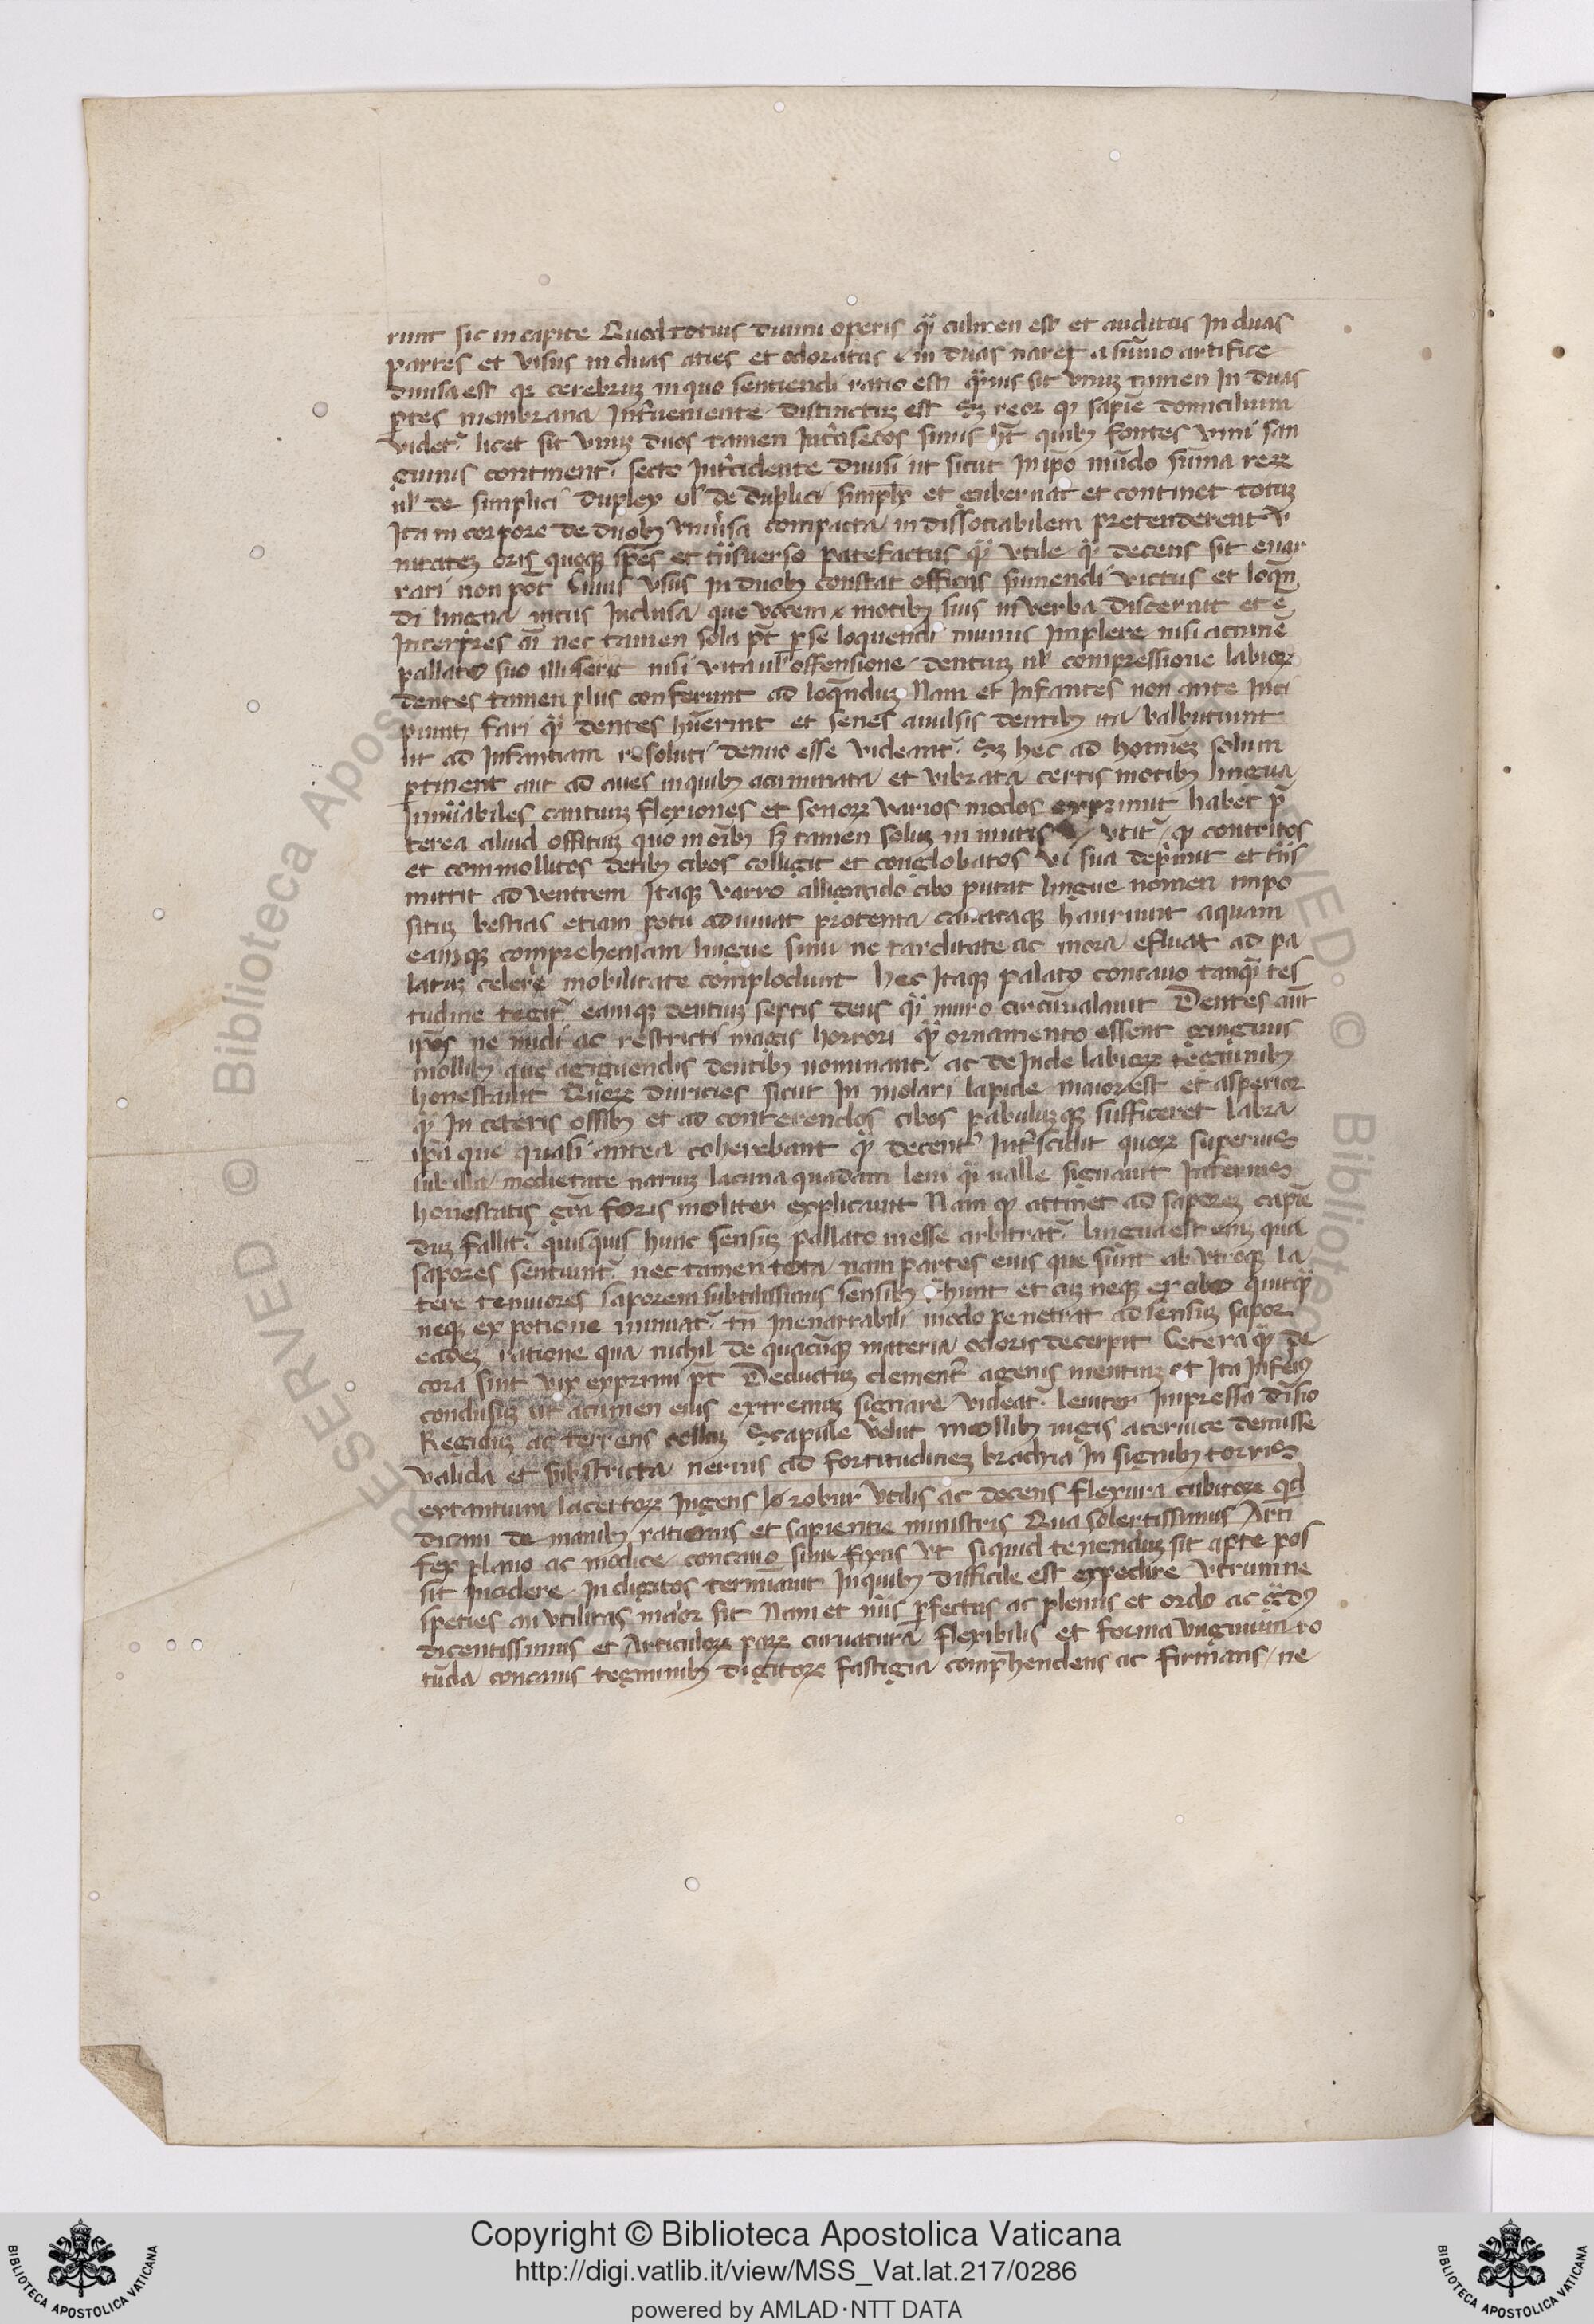 runt sic in capite Quod totius diuini operis q̃i culmen est et auditus In duas
partes et visus in duas aties et odoratus in duas nares a sũmo artifice
diuisa est qꝛ cerebrũ in quo sentiendi ratio est q̃uis sit vnuꝫ tamen In duas
ꝑtes membrana Int̃ueniente distinctuꝫ est Sꝫ reor qꝫ sapiẽ domicilium
videtᷣ licet sit vnuꝫ duos tamen Intᷣisecos sinus ht̃ quibꝫ fontes viui san
guinis continentᷣ secto Intᷣcidente diuisi ut sicut In ip̃o mũdo sũma reꝝ
ul̃ de simplici duplex ul̃ de duplici simplex et gubernat et continet totuꝫ
Ita in corpore de duobꝫ vniũsa compacta indissotiabilem pretenderent v
nitateꝫ oris quoqꝫ sp̃es et tñsuerso patefactus q̃ꝫ vtile q̃ꝫ decens sit enar
rari non pot̃ Cuius vsus In duobꝫ constat officiis sumendi victus et loq̃n
di lingua intus Inclusa que vocem motibꝫ suis in verba discernit et ẽ
Interp̃res ai̅ nec tamen sola pt̃ ꝑ se loquendi munus Implere nisi acumẽ
pallato suo illiserit nisi vita ul̃ offensione dentuꝫ ul̃ compressione labioꝝ
dentes tamen plus conferunt ad loq̃nduꝫ Nam et Infantes non ante Inci
piunt fari q̃ꝫ dentes hũerint et senes auulsis dentibꝫ ita balbutiunt
ut ad Infantiam resoluti denuo esse videantᷣ Sꝫ hec ad homineꝫ solum
ꝑtinent aut ad aues in quibꝫ acuminata et vibrata certis motibꝫ lingua
Innũabiles cantuuꝫ flexiones et sonoꝝ varios modos exprimit habet p̃
terea aliud offituꝫ quo in oĩbꝫ sꝫ tamen solum in mutis vtitᷣ qꝫ contritos
et commollitos dẽtibꝫ cibos colligit et conglobatos vi sua dep̃mit et tñs
mittit ad ventrem Itaqꝫ varro alligando cibo putat lingue nomen impo
situꝫ bestias etiam potu adiuuat protenta cauataqꝫ hauriunt aquam
eamqꝫ comprehensam lingue sinu ne tarditate ac mora efluat ad pa
latuꝫ celeri mobilitate complodunt hec Itaqꝫ palato concauo tanq̃ꝫ tes
tudine tegitᷣ eamqꝫ dentuꝫ septis deus q̃i muro circũualauit Dentes aũt
ip̃os ne nudi ac restricti magis horrori q̃ꝫ ornamento essent gingiuis
mollibꝫ que a gignendis dentibꝫ nominantᷣ ac deInde labioꝝ tegminibꝫ
honestauit Quoꝝ duricies sicut In molari lapide maior est et asperior
q̃ꝫ In ceteris ossibꝫ et ad conterendos cibos pabulũqꝫ sufficeret labra
ip̃a que quasi antea coherebant q̃ꝫ decent̃ Int̃scidit quoꝝ superius
sub illa medietate nariuꝫ lacuna quadam leui q̃i ualle signauit Inferius
honestatis gr̃a foris moliter explicauit Nam qꝫ attinet ad saporeꝫ capiẽ
duꝫ fallitᷣ quisquis hunc sensuꝫ pallato inesse arbitratᷣ lingua est eniꝫ qua
sapores sentiuntᷣ nec tamen tota nam partes eius que sunt ab vtroqꝫ la
tere tenuiores saporem subtilissimis sensibꝫ t̃hunt et cuꝫ neqꝫ ex cibo quicq̃ꝫ
neqꝫ ex potione minuatᷣ tñ inenarrabili modo penetrat ad sensuꝫ sapor
eadeꝫ ratione qua nichil de quacũqꝫ materia odoris decerpit Cetera q̃ꝫ de
cora sint vix exprimi pt̃ Deductum clement̃ a genis mentuꝫ et Ita Inferiꝰ
conclusuꝫ ut acumen eius extremuꝫ signare videatᷣ leuiter Impressa diuisio
Regiduꝫ ac terrens colluꝫ Scapule velut mollibꝫ iugis a ceruice demisse
valida et substricta neruis ad fortitudineꝫ brachia In signibꝫ toris
extantium lacertoꝝ Ingens robur vtilis ac decens flexura cubitoꝝ qd̃
dicam de manibꝫ rationis et sapientie ministris Qua solertissimus Arti
fex plano ac modice concauo sinu fixas vt si quid tenenduꝫ sit apte pos
sit Incidere In digitos termiãuit In quibꝫ difficile est expedire vtrumne
speties an vtilitas maior sit Nam et nũs ꝑfectus ac plenus et ordo ac g̃dꝰ
dicentissimus et Articuloꝝ paꝝ curuatura flexibilis et forma vnguium ro
tũda concauis tegminibꝫ digitoꝝ fastigia comp̃hendens ac firmans ne
Copyright © Biblioteca Apostolica Vaticana
http://digi.vatlib.it/view/MSS_Vat.lat.217/0286
powered by AMLAD·NTT DATA